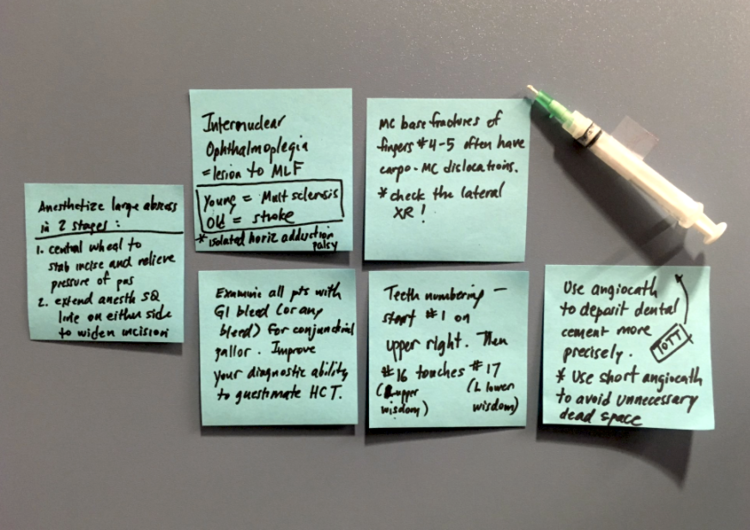 Anesthetize large abscess
in 2 stages:
1. central wheal to
stab incise and relieve
pressure of pus
2. extend anesth SQ
line on either side
to widen incision
Internuclear
Ophthalmoplegia
= lesion to MLF
Young = Mult sclerosis
Old = stroke
* isolated horiz adduction
palsy
MC base fractures of
fingers #4-5 often have
carpo-MC dislocations.
* check the lateral
XR!
Examine all pts with
GI bleed (or any
bleed) for conjunctival
pallor. Improve
your diagnostic ability
to guestimate HCT.
Teeth numbering –
start #1 on
upper right. Then
#16 touches #17
(L upper
wisdom)
(L lower
wisdom)
Use angiocath
to deposit dental
cement more
precisely.
TOTT
* Use short angiocath
to avoid unnecessary
dead space